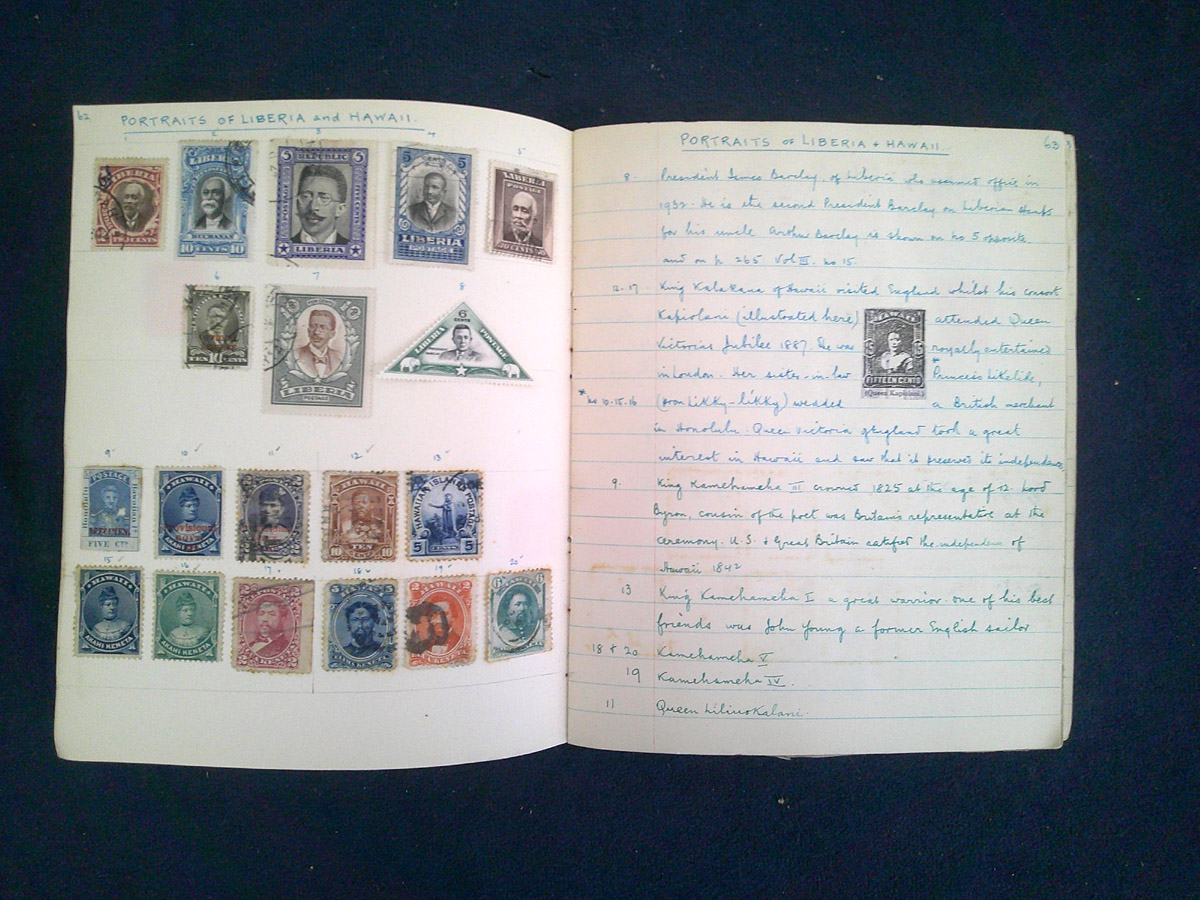 62
PORTRAITS OF LIBERIA and HAWAII.
2 3 4 5
LIBERIA
TWO CENTS
LIBERIA
BUCHANAN
10 CENTS 10
5 REPUBLIC 5
POSTAGE
LIBERIA
5 CENTS 5
LIBERIA
POSTAGE
LIBERIA
POSTAGE
CENTS
6 7 8
TEN CENTS
LIBERIA
POSTAGE
6
CENTS
LIBERIA POSTAGE
9 10 ✓ 11 ✓ 12 ✓ 13 ✓
POSTAGE
Honolulu
Hawaiian Is.
SPECIMEN
FIVE Cts
HAWAII
Provisional
GOVT.
AKAHI KENETA
HAWAII
10 TEN 10
HAWAIIAN ISLANDS POSTAGE
5 CENTS 5
15 ✓ 16 ✓ 17 ✓ 18 ✓ 19 ✓ 20
HAWAII
AKAHI KENETA
HAWAII
AKAHI KENETA
2 2
5 HAWAII 5
ELIMA KENETA
2 HAWAII 2
6 6
PORTRAITS OF LIBERIA + HAWAII. 63
8. President James Barclay of Liberia who assumed office in
1932. He is the second President Barclay on Liberian stamps
for his uncle Arthur Barclay is shown on no 5 opposite.
and on p. 265 Vol III. no 15.
12.17 King Kalakaua of Hawaii visited England whilst his consort
Kapiolani (illustrated here) attended Queen
Victorias Jubilee 1887. He was royally entertained
in London. Her sister-in-law * Princess Likelike,
* no 10.15.16 (pron LIKKY-LIKKY) wedded a British merchant
in Honolulu. Queen Victoria of England took a great
interest in Hawaii and saw that it preserved its independence
HAWAII
15 15
FIFTEEN CENTS
(Queen Kapiolani)
9. King Kamehameha III crowned 1825 at the age of 12. Lord
Byron, cousin of the poet was Britain's representative at the
ceremony. U.S. + Great Britain the independence of
Hawaii 1842
13 King Kamehameha I a great warrior. one of his best
friends was John Young a former English sailor
18 + 20 Kamehameha V
19 Kamehameha IV.
11 Queen Liliuokalani.